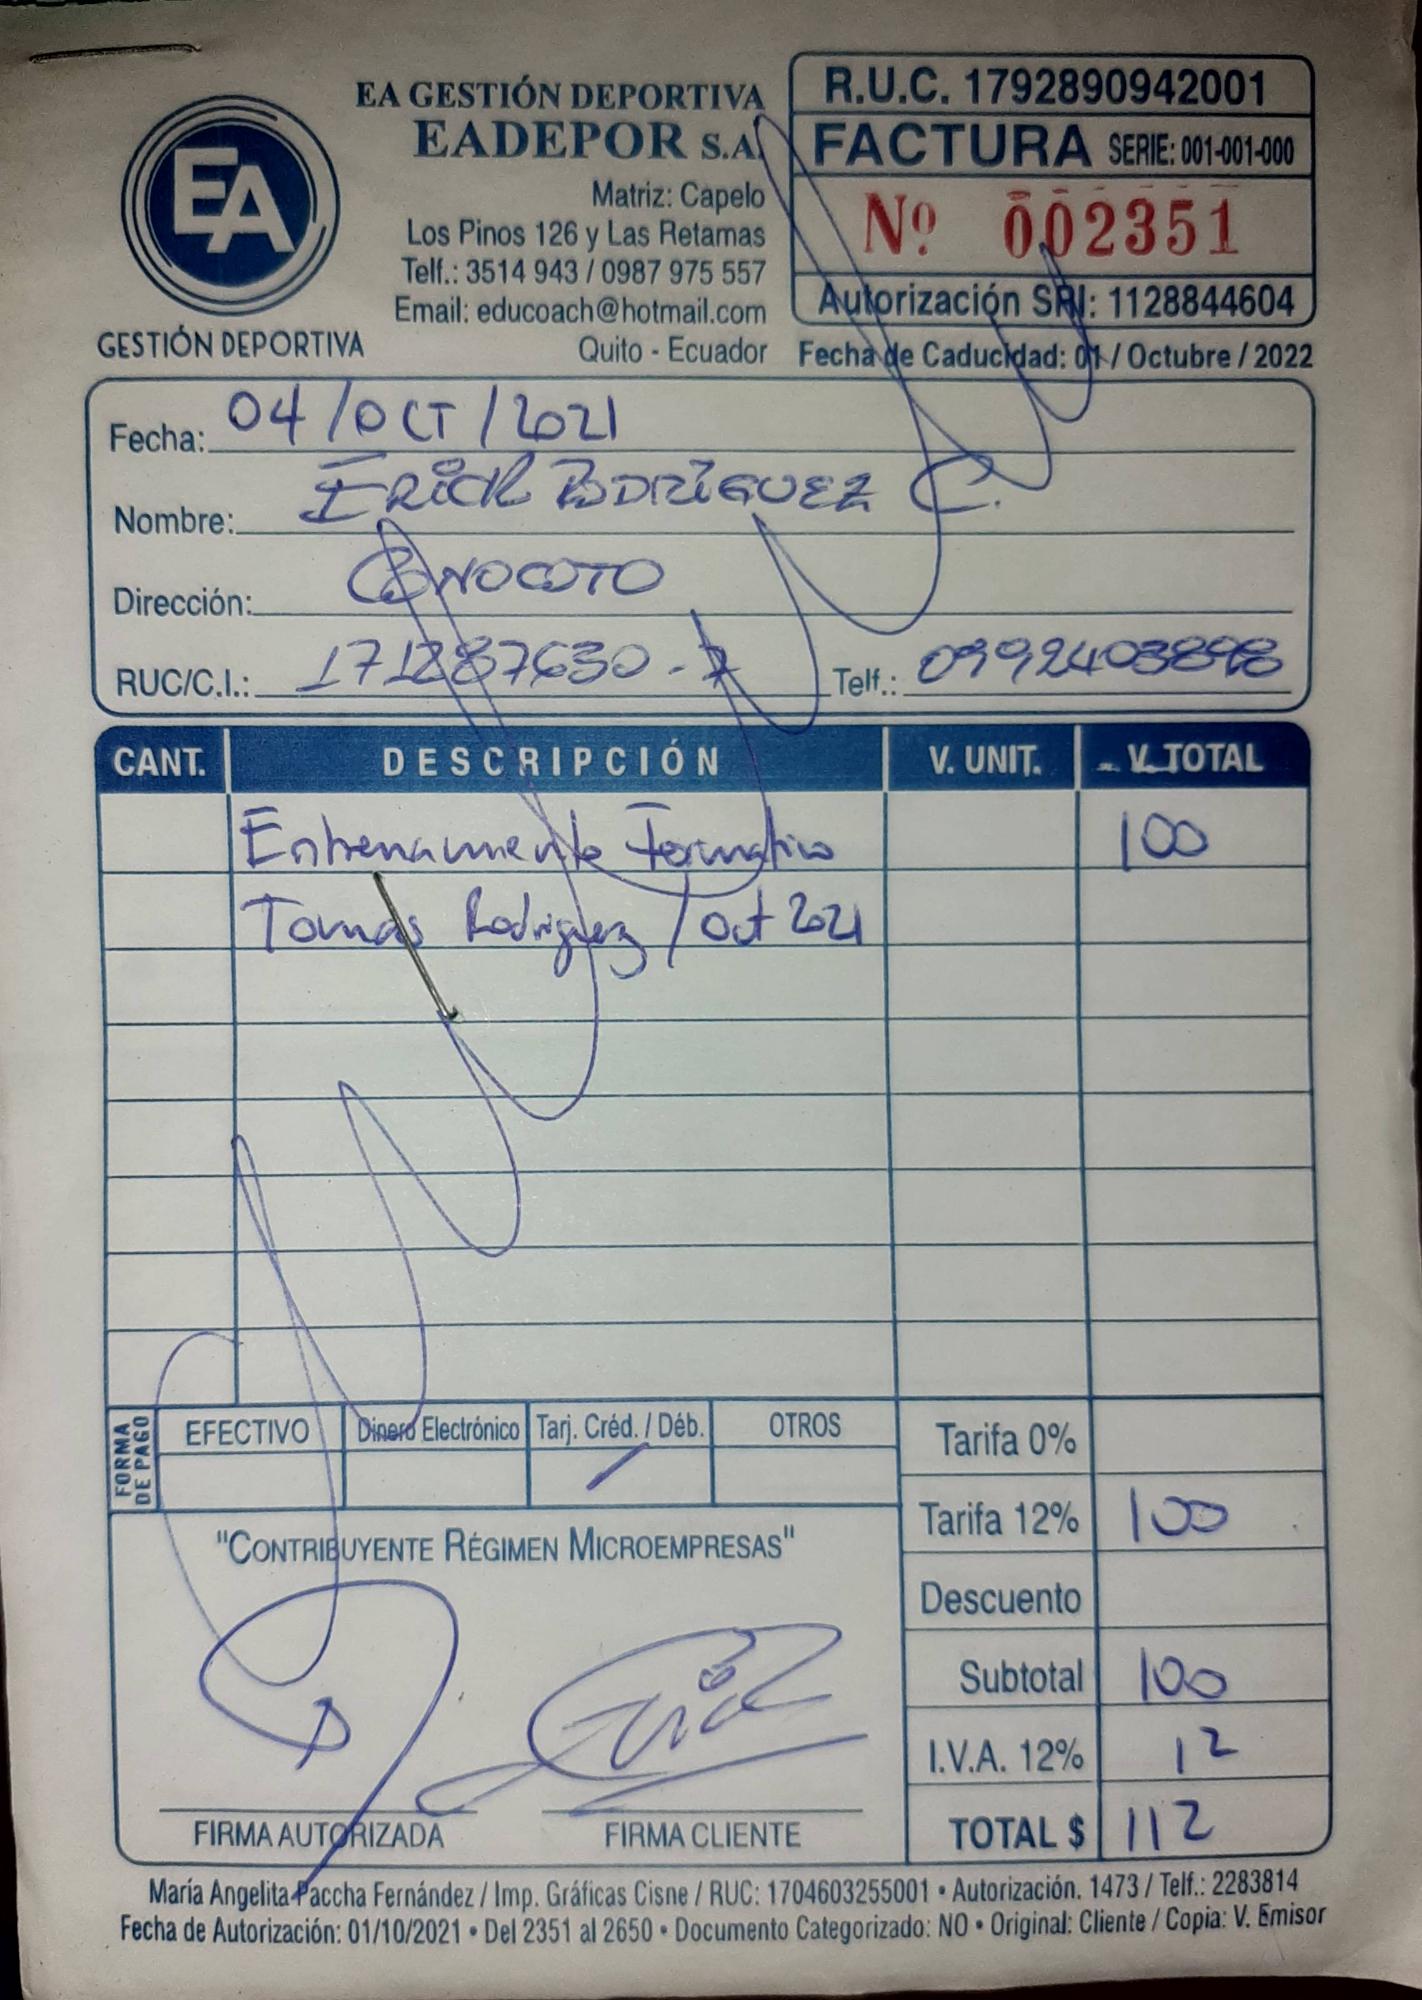 EA
GESTIÓN DEPORTIVA
EA GESTIÓN DEPORTIVA
EADEPOR S.A.
Matriz: Capelo
Los Pinos 126 y Las Retamas
Telf.: 3514 943 / 0987 975 557
Email: educoach@hotmail.com
Quito - Ecuador
R.U.C. 1792890942001
FACTURA SERIE: 001-001-000
Nº 002351
Autorización SRI: 1128844604
Fecha de Caducidad: 01 / Octubre / 2022
Fecha: 04/OCT/2021
Nombre: ERICK RODRÍGUEZ C.
Dirección: CONOCOTO
RUC/C.I.: 171287630-7 Telf.: 0992403898
CANT. DESCRIPCIÓN V. UNIT. V. TOTAL
Entrenamiento Formativo 100
Tomás Rodriguez / Oct 2021
FORMA DE PAGO EFECTIVO Dinero Electrónico Tarj. Créd. / Déb. OTROS
Tarifa 0%
Tarifa 12% 100
Descuento
Subtotal 100
I.V.A. 12% 12
TOTAL $ 112
"CONTRIBUYENTE RÉGIMEN MICROEMPRESAS"
FIRMA AUTORIZADA FIRMA CLIENTE
María Angelita Paccha Fernández / Imp. Gráficas Cisne / RUC: 1704603255001 • Autorización. 1473 / Telf.: 2283814
Fecha de Autorización: 01/10/2021 • Del 2351 al 2650 • Documento Categorizado: NO • Original: Cliente / Copia: V. Emisor